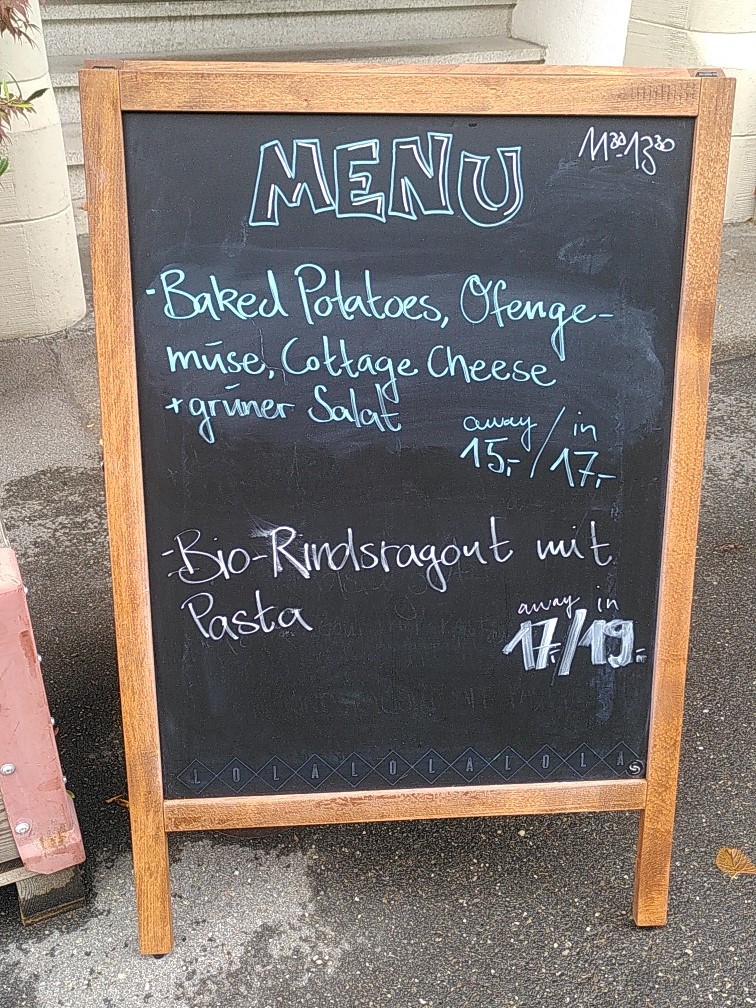 MENU
11³⁰-13³⁰
-Baked Potatoes, Ofenge-
müse, Cottage Cheese
+ grüner Salat
away / in
15,- / 17,-
-Bio-Rindsragout mit
Pasta
away in
17.-/19.-
LOLALOLALOLA